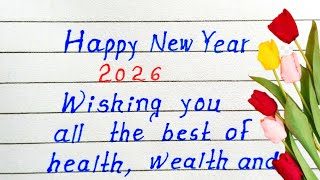 Happy New Year
2026
Wishing you
all the best of
health, wealth and